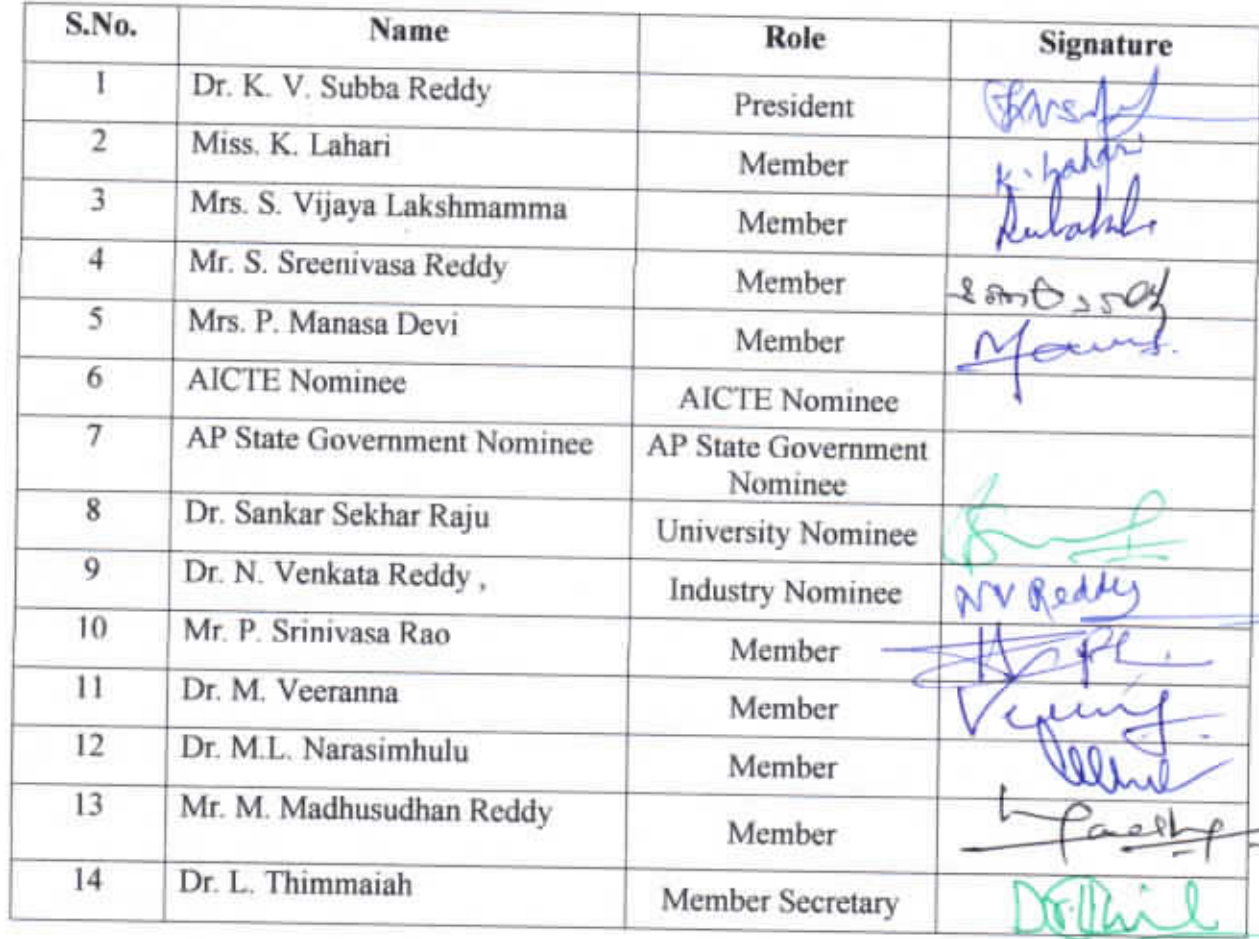 S.No. Name Role Signature
1 Dr. K. V. Subba Reddy President
2 Miss. K. Lahari Member K. Lahari
3 Mrs. S. Vijaya Lakshmamma Member
4 Mr. S. Sreenivasa Reddy Member
5 Mrs. P. Manasa Devi Member
6 AICTE Nominee AICTE Nominee
7 AP State Government Nominee AP State Government
Nominee
8 Dr. Sankar Sekhar Raju University Nominee
9 Dr. N. Venkata Reddy , Industry Nominee NV Reddy
10 Mr. P. Srinivasa Rao Member
11 Dr. M. Veeranna Member
12 Dr. M.L. Narasimhulu Member
13 Mr. M. Madhusudhan Reddy Member
14 Dr. L. Thimmaiah Member Secretary